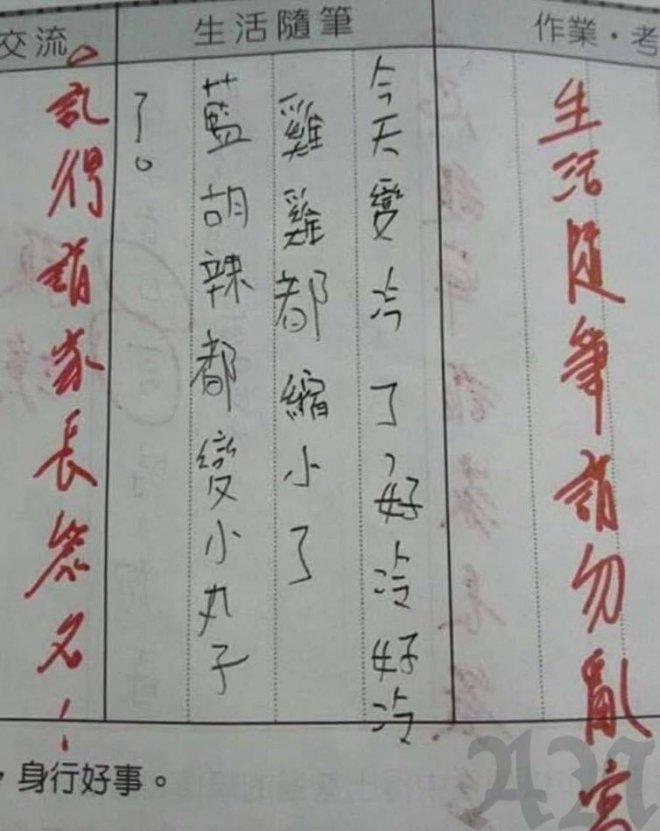 作業．考
生活隨筆請勿亂寫
生活隨筆
今天變冷了，好冷好冷
雞雞都縮小了
藍胡辣都變小丸子
了。
交流
記得請家長簽名！
，身行好事。